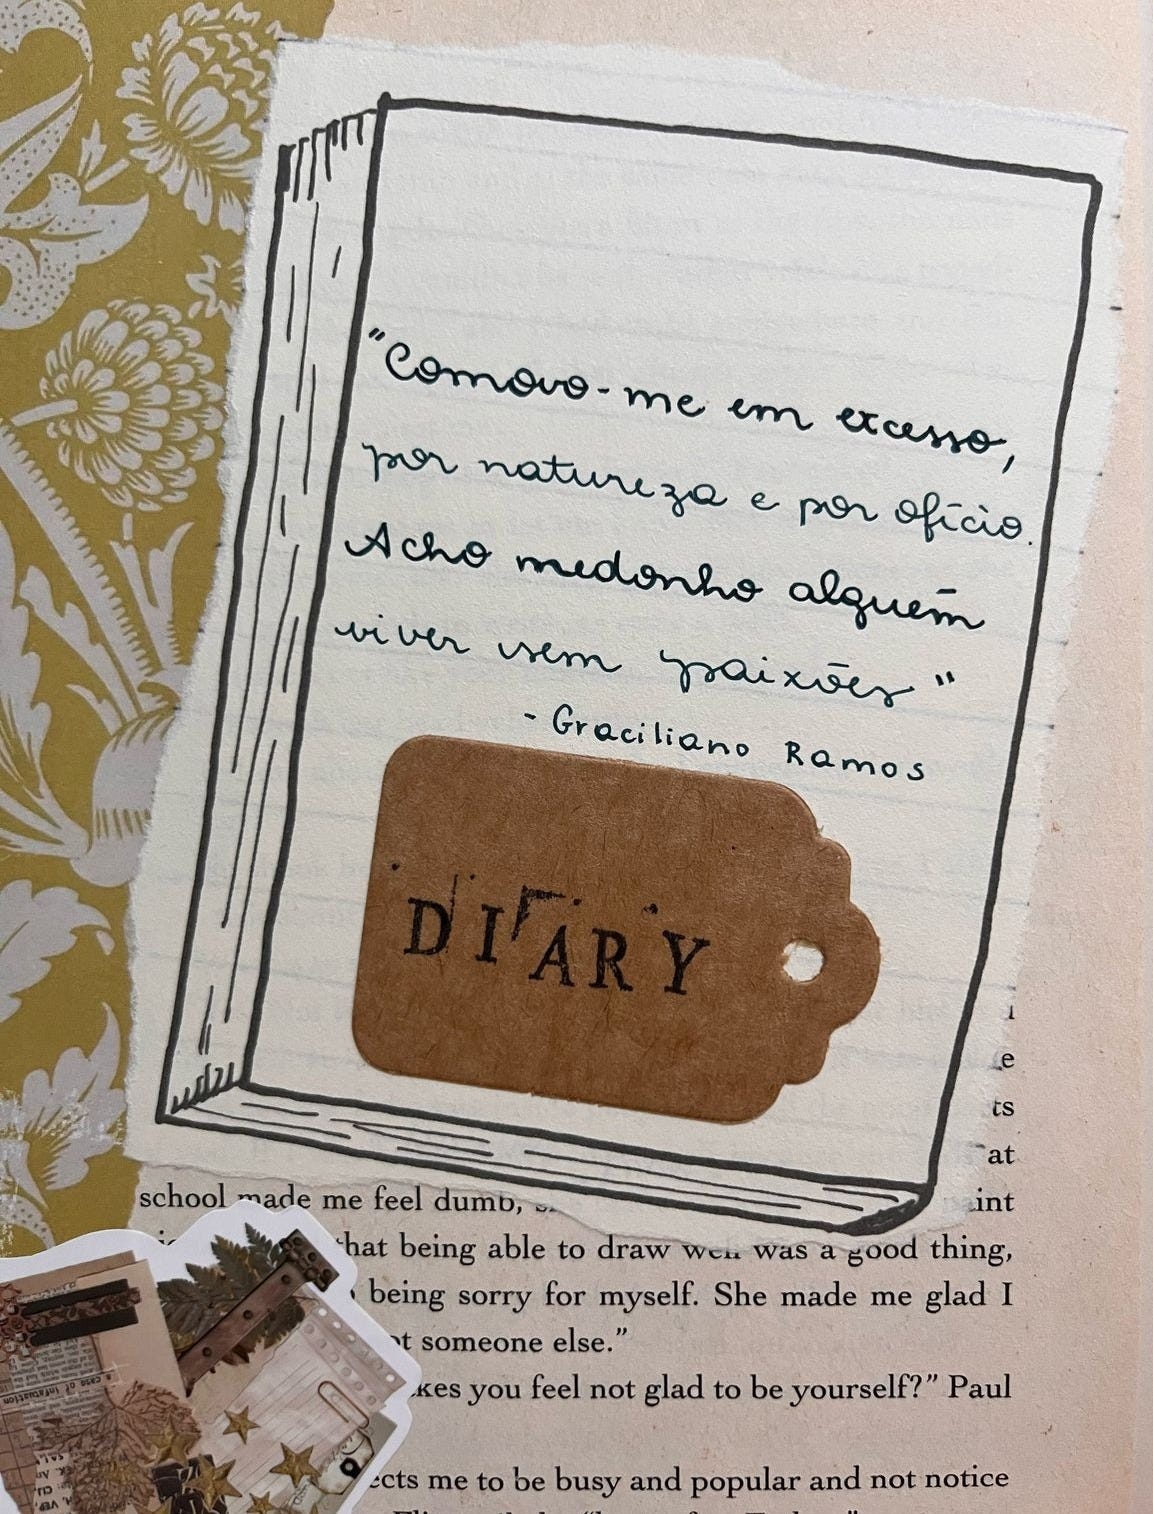 "Comovo-me em excesso,
por natureza e por ofício.
Acho medonho alguém
viver sem paixões"
- Graciliano Ramos
DIARY
e
ts
at
school made me feel dumb,
that being able to draw well was a good thing,
being sorry for myself. She made me glad I
someone else.”
you feel not glad to be yourself?” Paul
me to be busy and popular and not notice
a case of infatuation